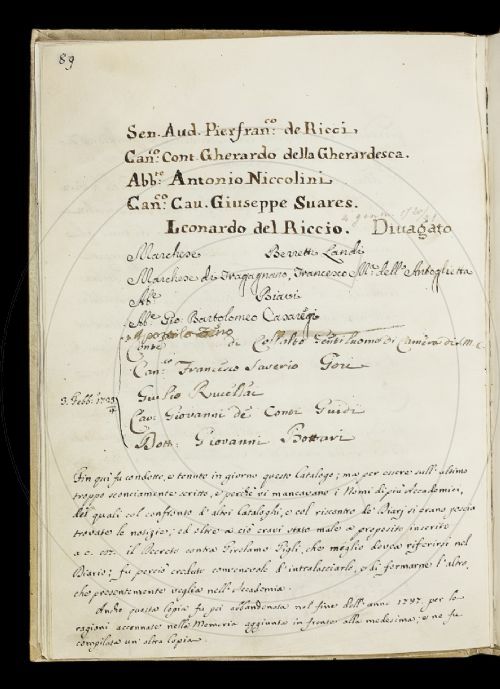 89
Sen. Aud. Pierfran.co de Ricci
Can.co Cont. Gherardo della Gherardesca.
Abb.te Antonio Niccolini
Can.co Cau. Giuseppe Suares.
Leonardo del Riccio. Diuagato
Marchese Berretti Landi
Marchese di Fragagnano, Francesco M.a dell' Antoglietta
Ab.e Biavi
Ab.e Gio. Bartolomeo Casaregi
Apostolo Zeno
Conte di Collalto Gentiluomo di Camera di
Can.co Francesco Saverio Gori
Giulio Rucellai
3. Febb.
Cav. Giovanni de' Conti Guidi
Dott. Giovanni Bottari
Fin qui fu condotto, e tenuto in giorno questo Catalogo; ma per essere sull' ultimo
troppo sconciamente scritto, e perche vi mancavano i Nomi di più Accademici,
dei quali col confronto d' altri Cataloghi, e col riscontro de' Diarj si erano poscia
trovate le notizie; ed oltre a ciò eravi stato male a proposito inserito
a c. il Decreto contra Girolamo Gigli, che meglio dovea riferirsi nel
Diario; fu perciò creduto convenevole d' intralasciarlo, e di formarne l' altro,
che presentemente veglia nell' Accademia.
Anche questa Copia fu poi abbandonata nel fine dell' anno 1747. per le
ragioni accennate nella Memoria aggiunta in fronte alla medesima; e ne fu
compilata un' altra Copia.